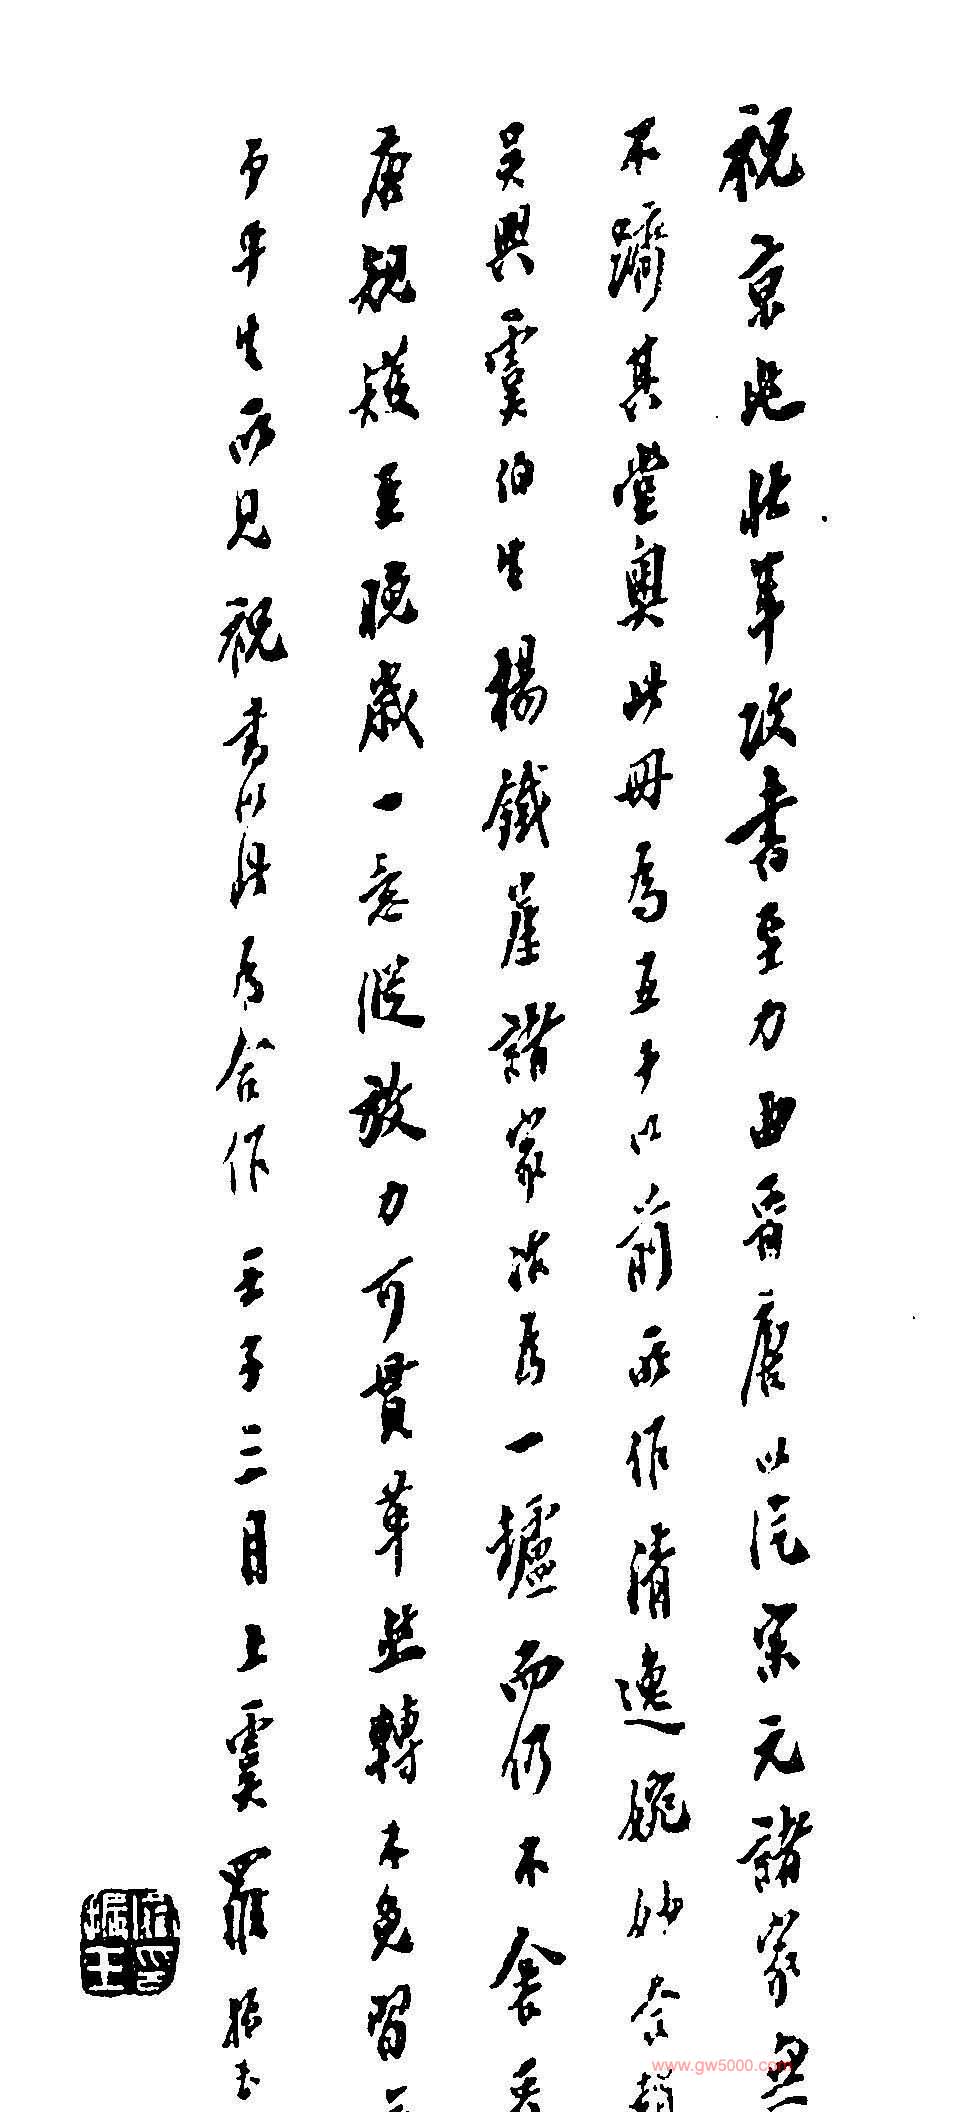 祝京兆壯年攻書至力由晉唐以汜宋元諸家無
不躋其堂奧此冊為五十以前所作清逸婉妙合趙
吳興虞伯生楊鐵崖諸家冶為一鑪而仍不舍晉
唐規矱至晚歲一意縱放力可貫革然轉不免習
予平生所見祝書以此為合作壬子二月上虞羅振玉
www.gw5000.com